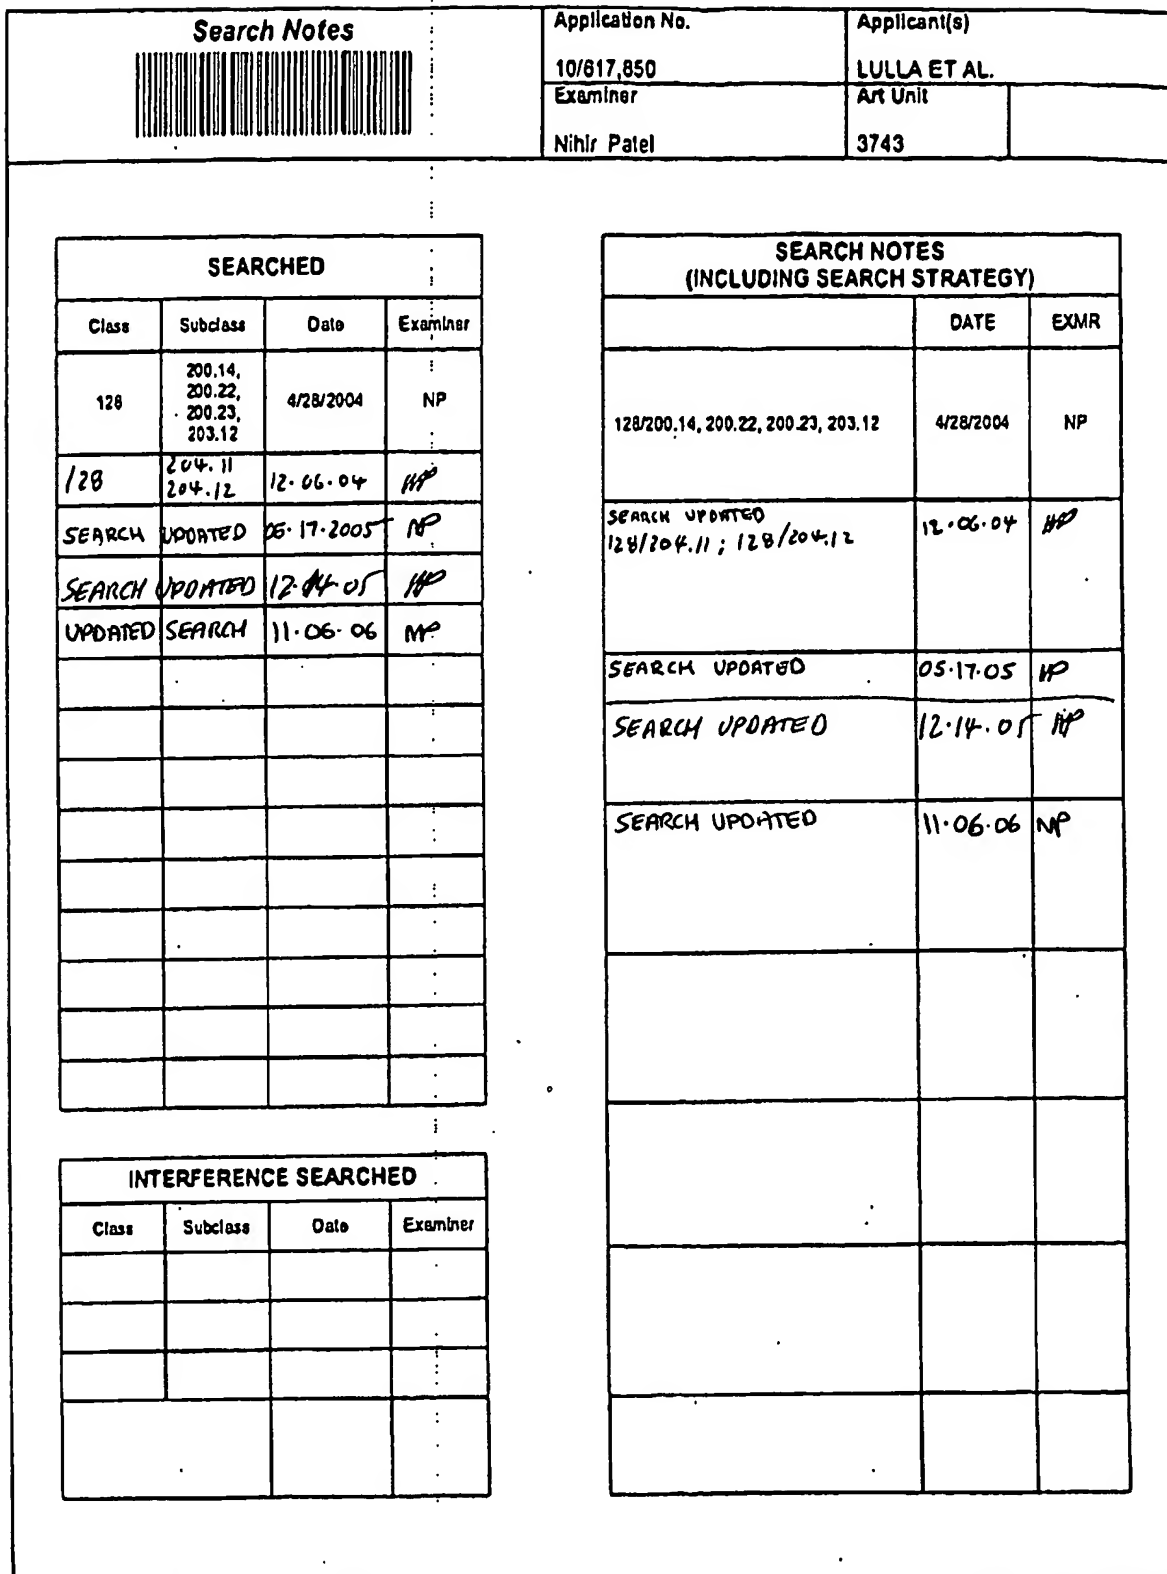 Search Notes
Application No.
10/617,850
Applicant(s)
LULLA ET AL.
Examiner
Nihir Patel
Art Unit
3743
SEARCHED
Class Subclass Date Examiner
128 200.14, 200.22, 200.23, 203.12 4/28/2004 NP
128 204.11 204.12 12.06.04 NP
SEARCH UPDATED 05.17.2005 NP
SEARCH UPDATED 12.14.05 NP
UPDATED SEARCH 11.06.06 NP
INTERFERENCE SEARCHED
Class Subclass Date Examiner
SEARCH NOTES
(INCLUDING SEARCH STRATEGY)
DATE EXMR
128/200.14, 200.22, 200.23, 203.12 4/28/2004 NP
SEARCH UPDATED
128/204.11; 128/204.12 12.06.04 NP
SEARCH UPDATED 05.17.05 NP
SEARCH UPDATED 12.14.05 NP
SEARCH UPDATED 11.06.06 NP